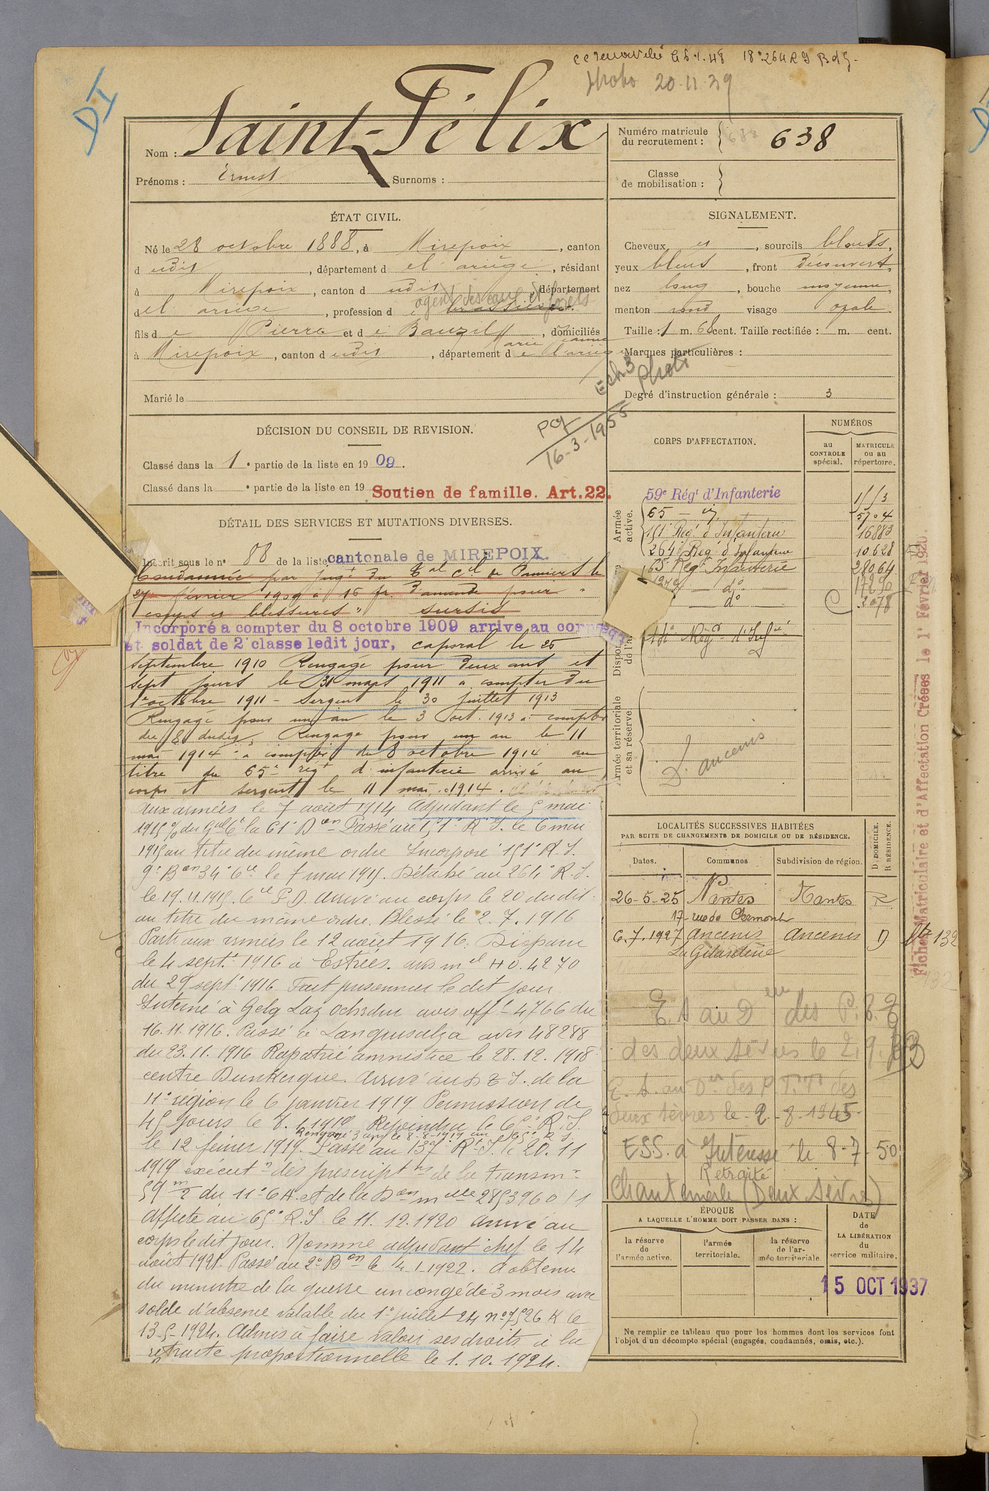 18e 264 RI Bdg-
Photo 20-11-39
DI
Nom : Saint-Félix
Prénoms : Ernest Surnoms :
Numéro matricule du recrutement : 638
Classe de mobilisation :
ÉTAT CIVIL.
Né le 28 octobre 1888, à Mirepoix, canton
d udit, département d el ariège, résidant
à Mirepoix, canton d udit, département
d el ariège, profession d e
agent des eaux et forêts
fils d e Pierre et d e Bauzil Marie Jeanne, domiciliés
à Mirepoix, canton d udit, département d e l'ariège
Marié le
SIGNALEMENT.
Cheveux et, sourcils blonds,
yeux bleus, front découvert,
nez long, bouche moyenne,
menton rond visage ovale.
Taille : 1 m. 66 cent. Taille rectifiée : m. cent.
Marques particulières :
Degré d'instruction générale : 3
Ech 3 Photo
PCJ 16-3-1955
DÉCISION DU CONSEIL DE REVISION.
Classé dans la 1e partie de la liste en 1909.
Classé dans la e partie de la liste en 19
Soutien de famille. Art. 22.
DÉTAIL DES SERVICES ET MUTATIONS DIVERSES.
Inscrit sous le n° 88 de la liste cantonale de MIREPOIX.
Condamné par jugt du Tal cil de Pamiers le
27 février 1909 à 16 fr d'amende pour
coups et blessures" sursis
Incorporé à compter du 8 octobre 1909 arrive au corps
et soldat de 2e classe ledit jour, caporal le 25
septembre 1910 Rengagé pour deux ans et
sept jours le 31 mars 1911 à compter du
1er octobre 1911 - Sergent le 30 juillet 1913
Rengagé pour un an le 3 oct. 1913 à compter
du 8 dudit, Rengagé pour un an le 11
mai 1914 à compter du 8 octobre 1914 au
titre du 65e régt d'infanterie arrivé au
corps et sergent le 11 mai 1914.
Aux armées le 7 août 1914 adjudant le 5 mai
1915 o/ du Gal Ct la 61e Don Passé au 151e R.I. le 6 mai
1915 au titre du même ordre Incorporé 151e R.I.
9e Bon 34e Cie le 7 mai 1915. Détaché au 261e R.I.
le 19.11.1915. et P.D. arrivé au corps le 20 dudit
au titre du même ordre. Blessé le 2.7.1916
Parti aux armées le 12 août 1916. Disparu
le 4 septe 1916 à Estrées. avis mel HO. 4270
du 29 septe 1916. Fait prisonnier le dit jour
Interné à avis off 4766 du
16.11.1916. Passé à Langensalza avis 48288
du 23.11.1916. Rapatrié armistice le 28.12.1918
centre Dunkerque. Arrivé au D.T.I. de la
11e région le 6 janvier 1919 Permission de
45 jours le 8.1.1919. Rejoindra le 65e R.I.
Rengagé 3 ans le 8-8-1919 au 65e R.I.
le 12 février 1919. Passé au 137e R.I. le 20.11
1919 exécutn des prescriptions de la transmon
59 m/2 du 11e C.A. et de la Don mlle 2853960/1
Affecté au 65e R.I. le 11.12.1920 Arrivé au
corps le dit jour. Nommé adjudant chef le 14
août 1921. Passé au 2e Bon le 4.1.1922. a obtenu
du ministre de la guerre un congé de 3 mois avec
solde d'absence valable du 1er juillet 24 n° 7526 K le
13-5-1924. Admis à faire valoir ses droits à la
retraite proportionnelle le 1.10.1924.
CORPS D'AFFECTATION.
NUMÉROS
au CONTROLE spécial.
MATRICULE ou au répertoire.
Armée active.
59e Régt d'Infanterie 1113
65 — d° 5704
151e Régt d'Infanterie 16883
261e Régt d'Infanterie 10628
65e Régt Infanterie 28064
137e — d° 17290
— d° 3078
armée territoriale et sa réserve.
D. ancenis
Fiches Matriculaire et d'Affectation Créées le 1er Février 1920.
LOCALITÉS SUCCESSIVES HABITÉES
PAR SUITE DE CHANGEMENTS DE DOMICILE OU DE RÉSIDENCE.
Dates. Communes Subdivision de région. D. DOMICILE. R. RÉSIDENCE.
26-5-25 Nantes Nantes R
17 rue de Clermont
6.7.1927 Ancenis Ancenis D
La Gilardière
E.S au D des P.
des deux Sèvres le
E.S. au Don des P.T.T des
Deux Sèvres le 2-8-1945
ESS. à Intéressé le 8-7-50
Retraité
Chantemerle (Deux Sèvres)
ÉPOQUE
A LAQUELLE L'HOMME DOIT PASSER DANS :
la réserve de l'armée active.
l'armée territoriale.
la réserve de l'armée territoriale.
DATE de LA LIBÉRATION du service militaire.
15 OCT 1937
Ne remplir ce tableau que pour les hommes dont les services font
l'objet d'un décompte spécial (engagés, condamnés, omis, etc.).